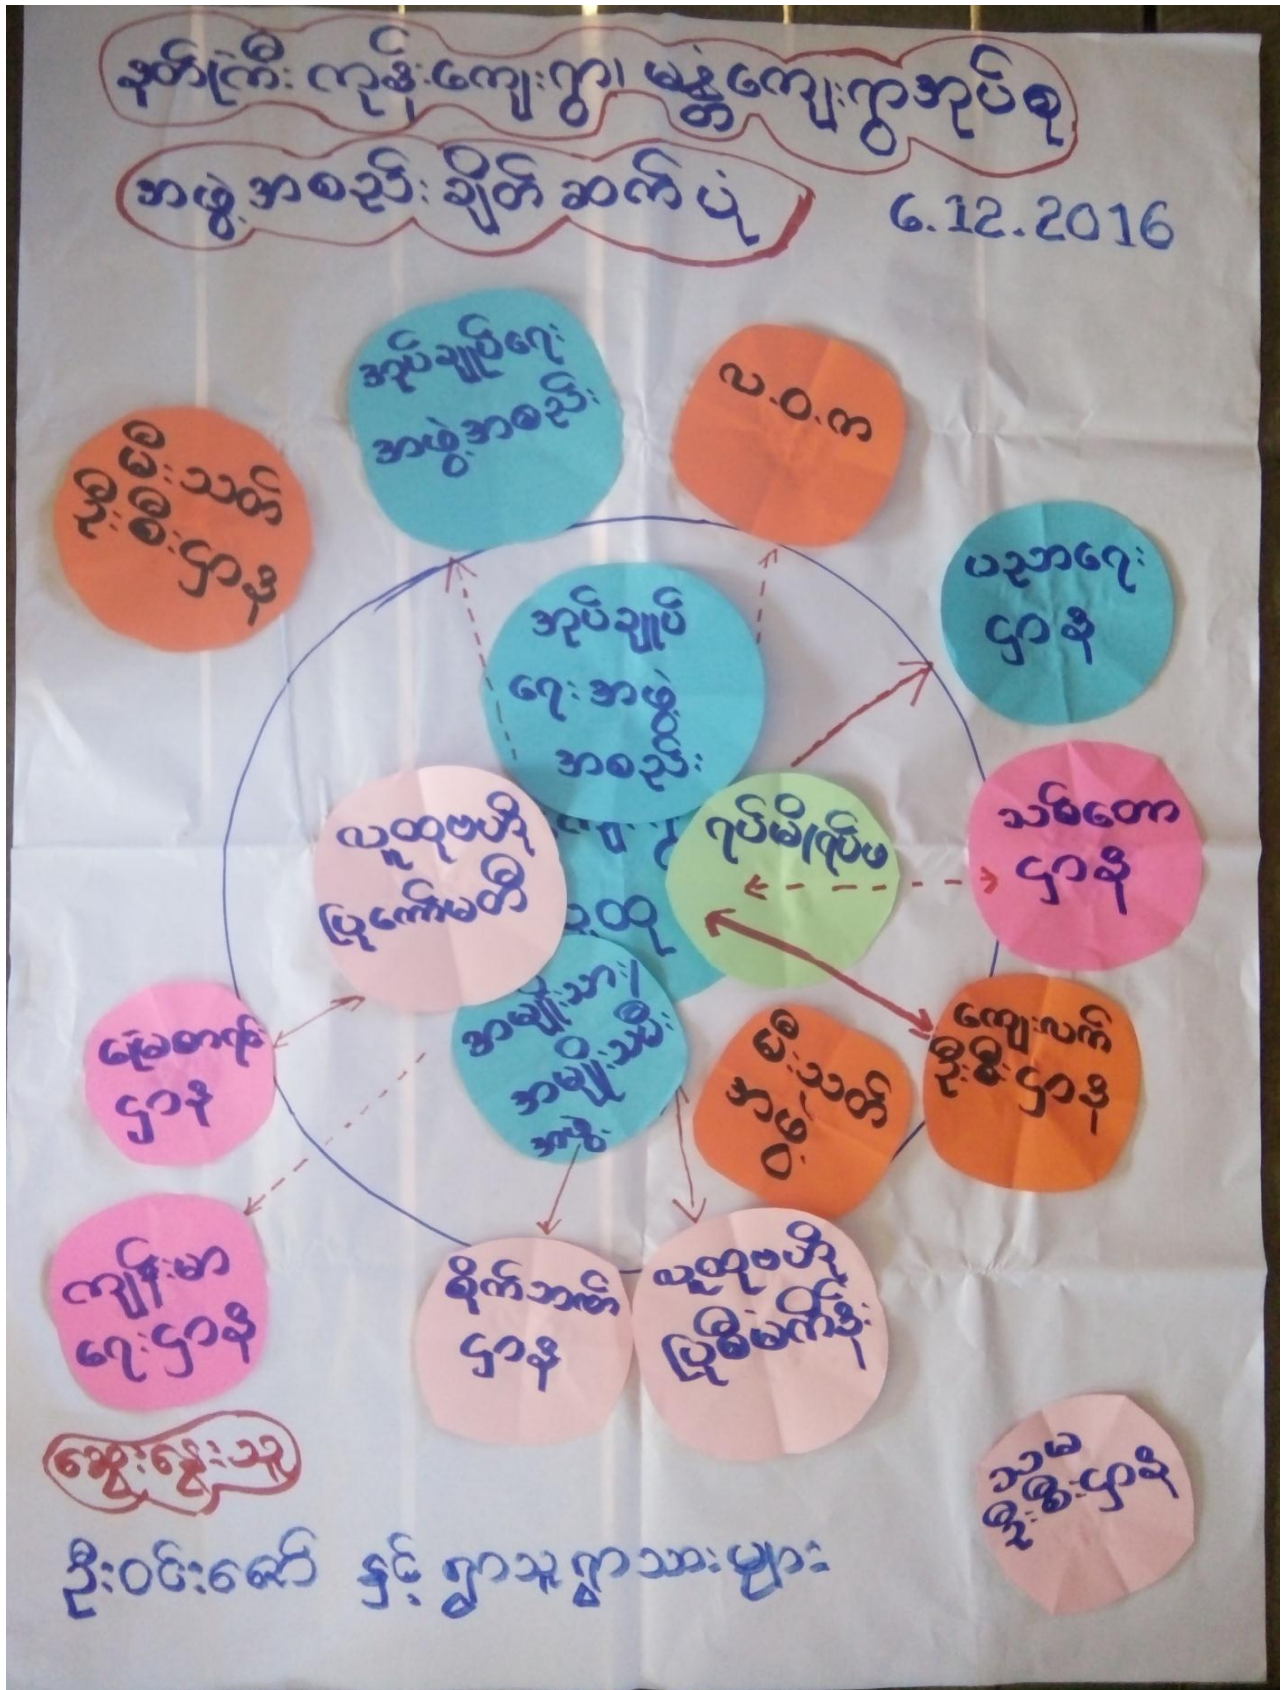 နတ်ကြီး ကုန်းကျေးရွာ၊ မန္တံကျေးရွာအုပ်စု
အဖွဲ့အစည်း ချိတ်ဆက်ပုံ
6.12.2016
အုပ်ချုပ်ရေး
အဖွဲ့အစည်း
လ.ဝ.က
မီးသတ်
ဦးစီးဌာန
ပညာရေး
ဌာန
အုပ်ချုပ်
ရေးအဖွဲ့
အစည်း
လူထုဗဟို
ပြုကော်မတီ
ရပ်မိ/ရပ်ဖ
သစ်တော
ဌာန
ထု
အမျိုးသား/
အမျိုးသမီး
အဖွဲ့
မီးသတ်
အဖွဲ့
ဝင်
ကျေးလက်
ဦးစီးဌာန
ဌာန
ကျန်းမာ
ရေးဌာန
စိုက်ဘဏ်
ဌာန
လူထုဗဟို
ပြုစီမံကိန်း
သမ
ဦးစီးဌာန
ဆွေးနွေးသူ
ဦးဝင်းဇော် နှင့် ရွာသူရွာသားများ